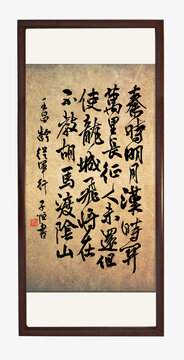 秦時明月漢時關
萬里長征人未還但
使龍城飛將在
不教胡馬渡陰山
王昌齡 從軍行